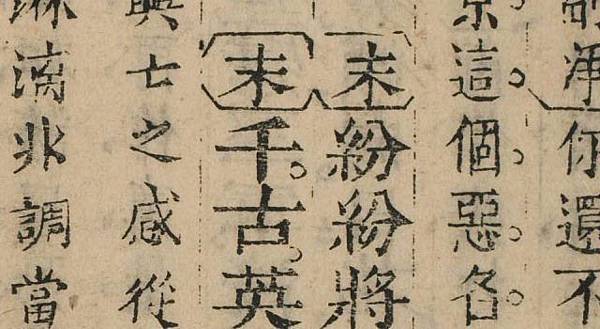 净你還不
這。個。惡。各。
末紛紛將
末千。古。英
興七之感從
淋漓北調當